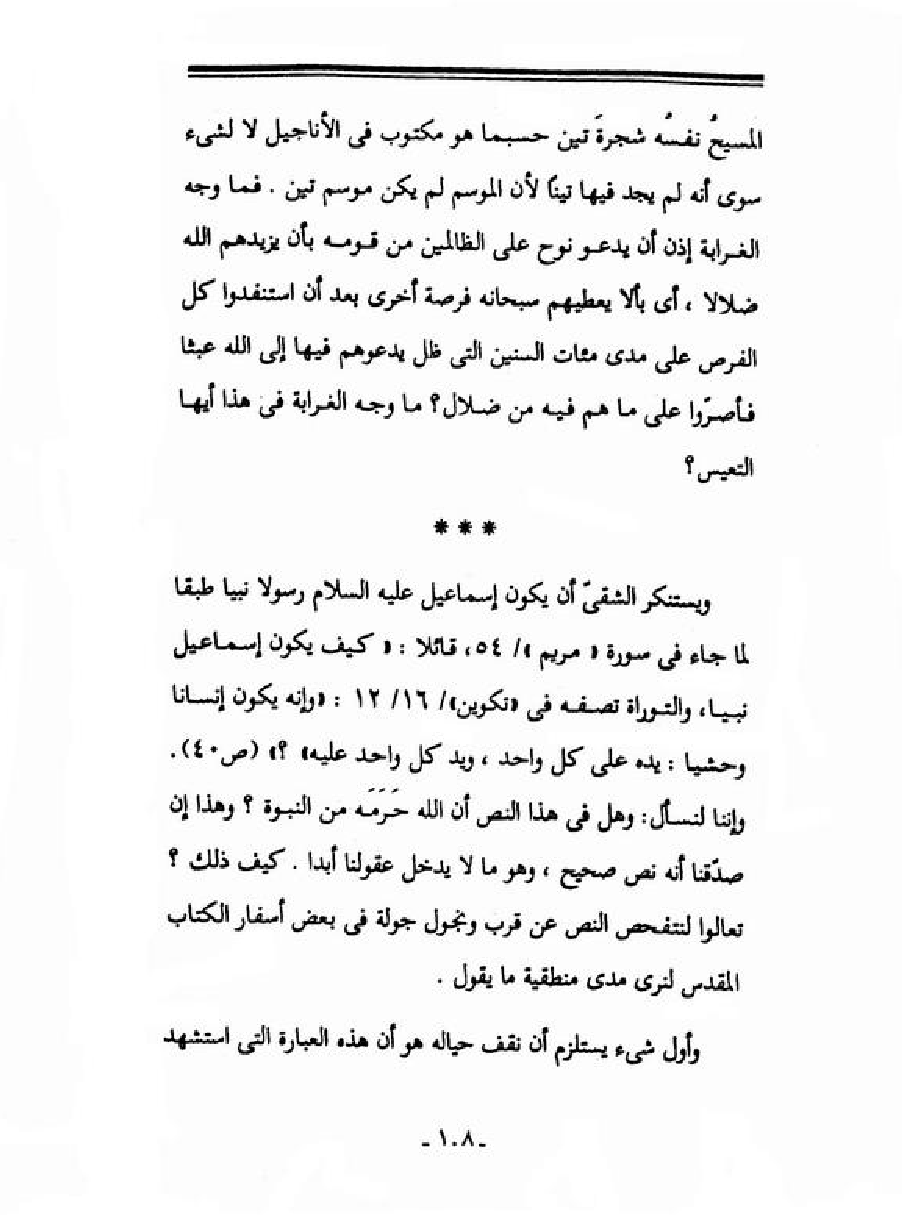 المسيحُ نفسُه شجرةَ تين حسبما هو مكتوب فى الأناجيل لا لشىء
سوى أنه لم يجد فيها تينًا لأن الموسم لم يكن موسم تين . فما وجه
الغرابة إذن أن يدعو نوح على الظالمين من قومه بأن يزيدهم الله
ضلالا ، أى بألا يعطيهم سبحانه فرصة أخرى بعد أن استنفدوا كل
الفرص على مدى مئات السنين التى ظل يدعوهم فيها إلى الله عبثا
فأصرّوا على ما هم فيه من ضلال؟ ما وجه الغرابة فى هذا أيها
التعيس؟
* * *
ويستنكر الشقىّ أن يكون إسماعيل عليه السلام رسولا نبيا طبقا
لما جاء فى سورة « مريم »/ ٥٤، قائلا : « كيف يكون إسماعيل
نبيا، والتوراة تصفه فى «تكوين»/ ١٦/ ١٢ : «وإنه يكون إنسانا
وحشيا : يده على كل واحد ، ويد كل واحد عليه» ؟» (ص٤٠).
وإننا لنسأل: وهل فى هذا النص أن الله حَرَمَه من النبوة ؟ وهذا إن
صدّقنا أنه نص صحيح ، وهو ما لا يدخل عقولنا أبدا . كيف ذلك ؟
تعالوا لنتفحص النص عن قرب ونجول جولة فى بعض أسفار الكتاب
المقدس لنرى مدى منطقية ما يقول .
وأول شىء يستلزم أن نقف حياله هو أن هذه العبارة التى استشهد
ـ ١٠٨ ـ